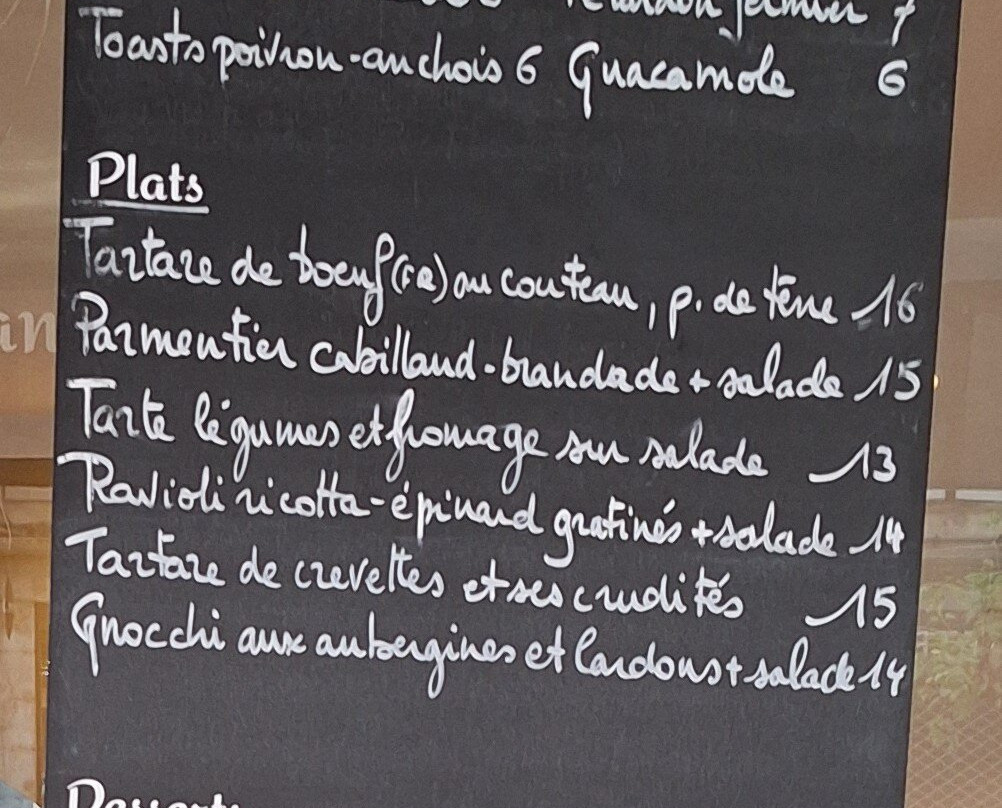 fermier 7
Toasts poivron-anchois 6 Guacamole 6
Plats
Tartare de boeuf(FR) au couteau, p. de terre 16
Parmentier cabillaud-brandade + salade 15
Tarte légumes et fromage sur salade 13
Ravioli ricotta-épinard gratinés + salade 14
Tartare de crevettes et ses crudités 15
Gnocchi aux aubergines et lardons + salade 14
Desserts